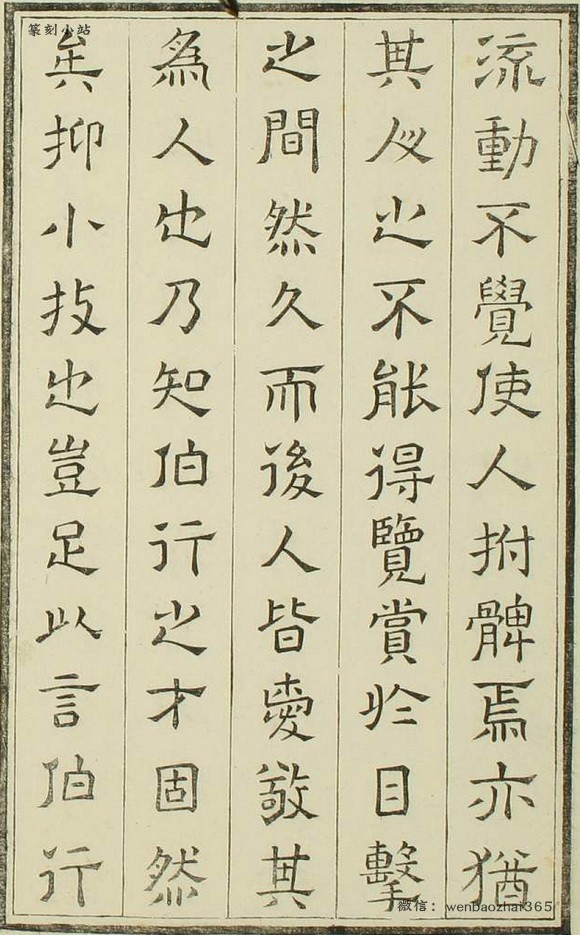 流動不覺使人拊髀焉亦猶
其必之不能得覽賞於目擊
之間然久而後人皆愛敬其
為人也乃知伯行之才固然
矣抑小技也豈足以言伯行
篆刻小站
微信：wenbaozhai365